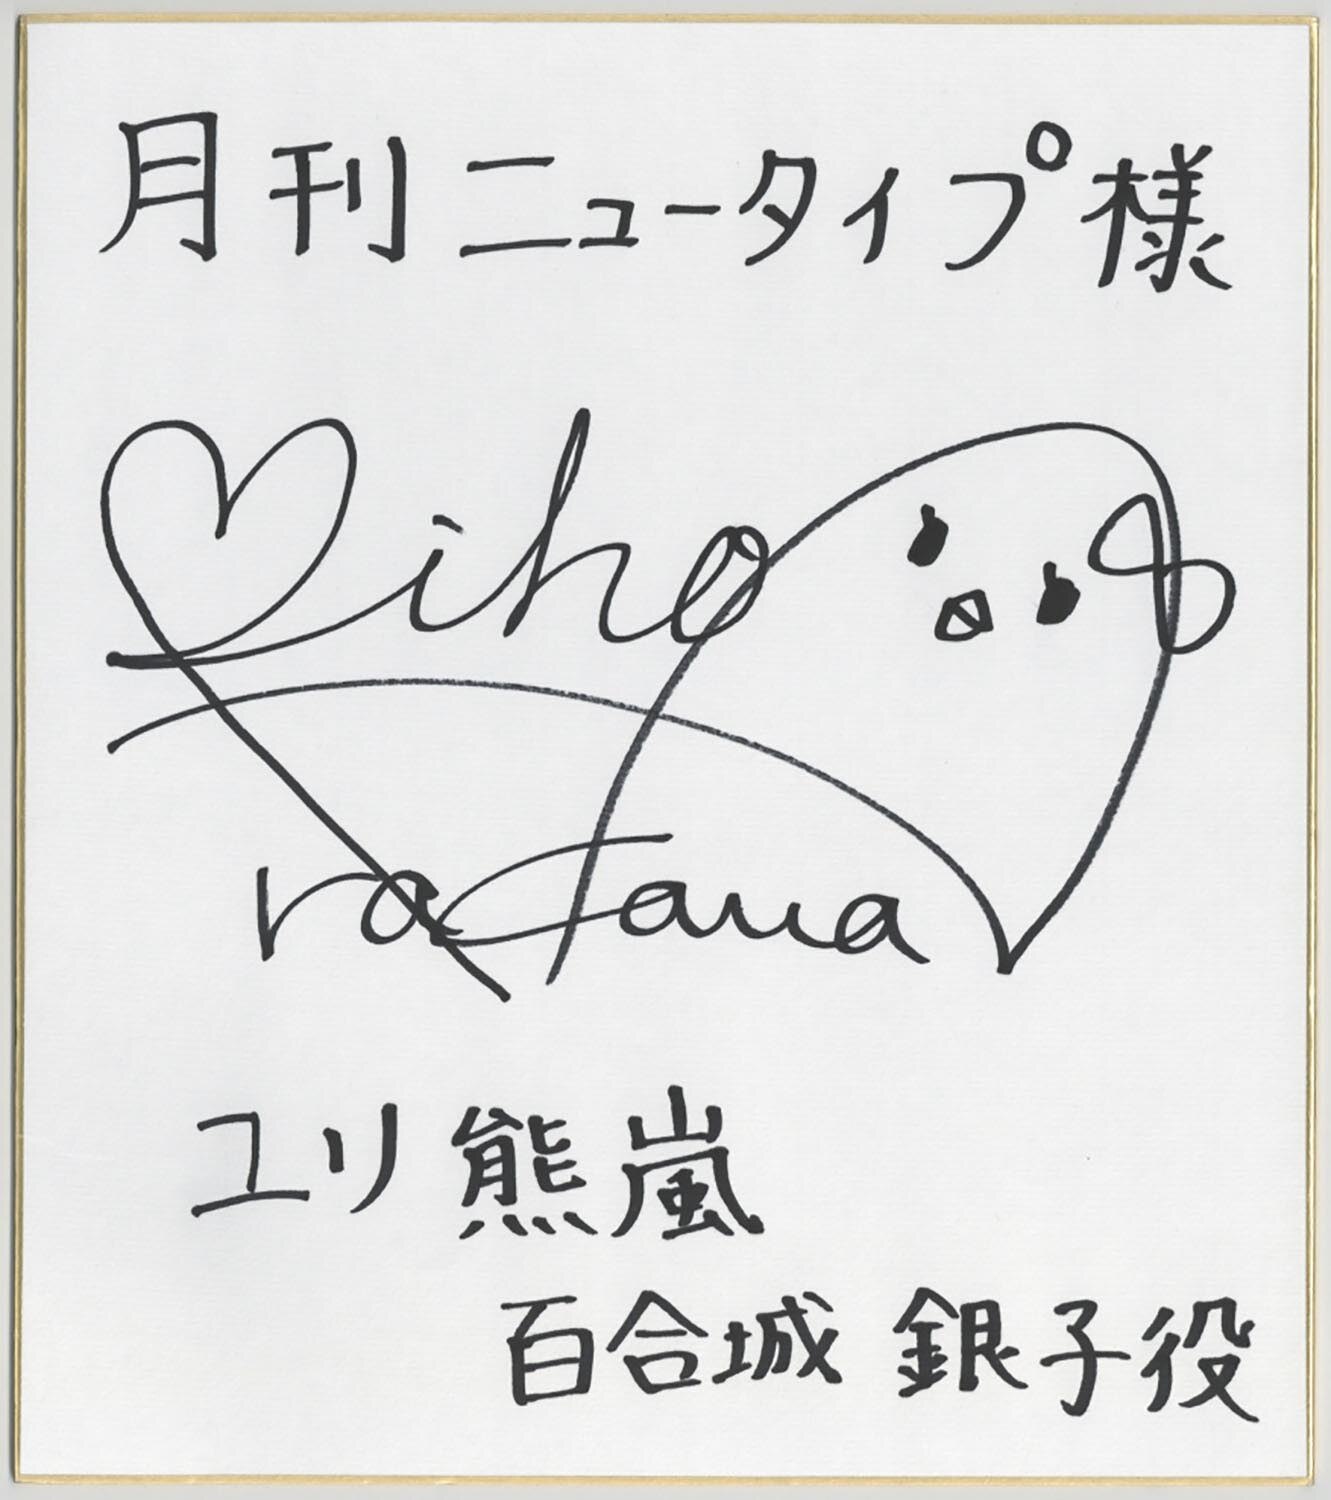 月刊ニュータイプ様
Miho
rakawa
ユリ熊嵐
百合城 銀子役